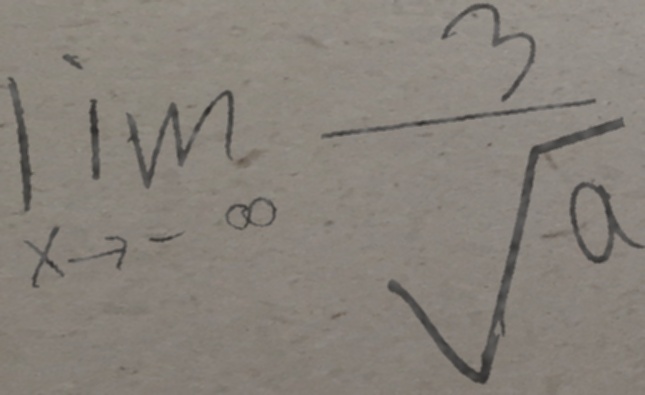 lim x→-∞ 3/√a